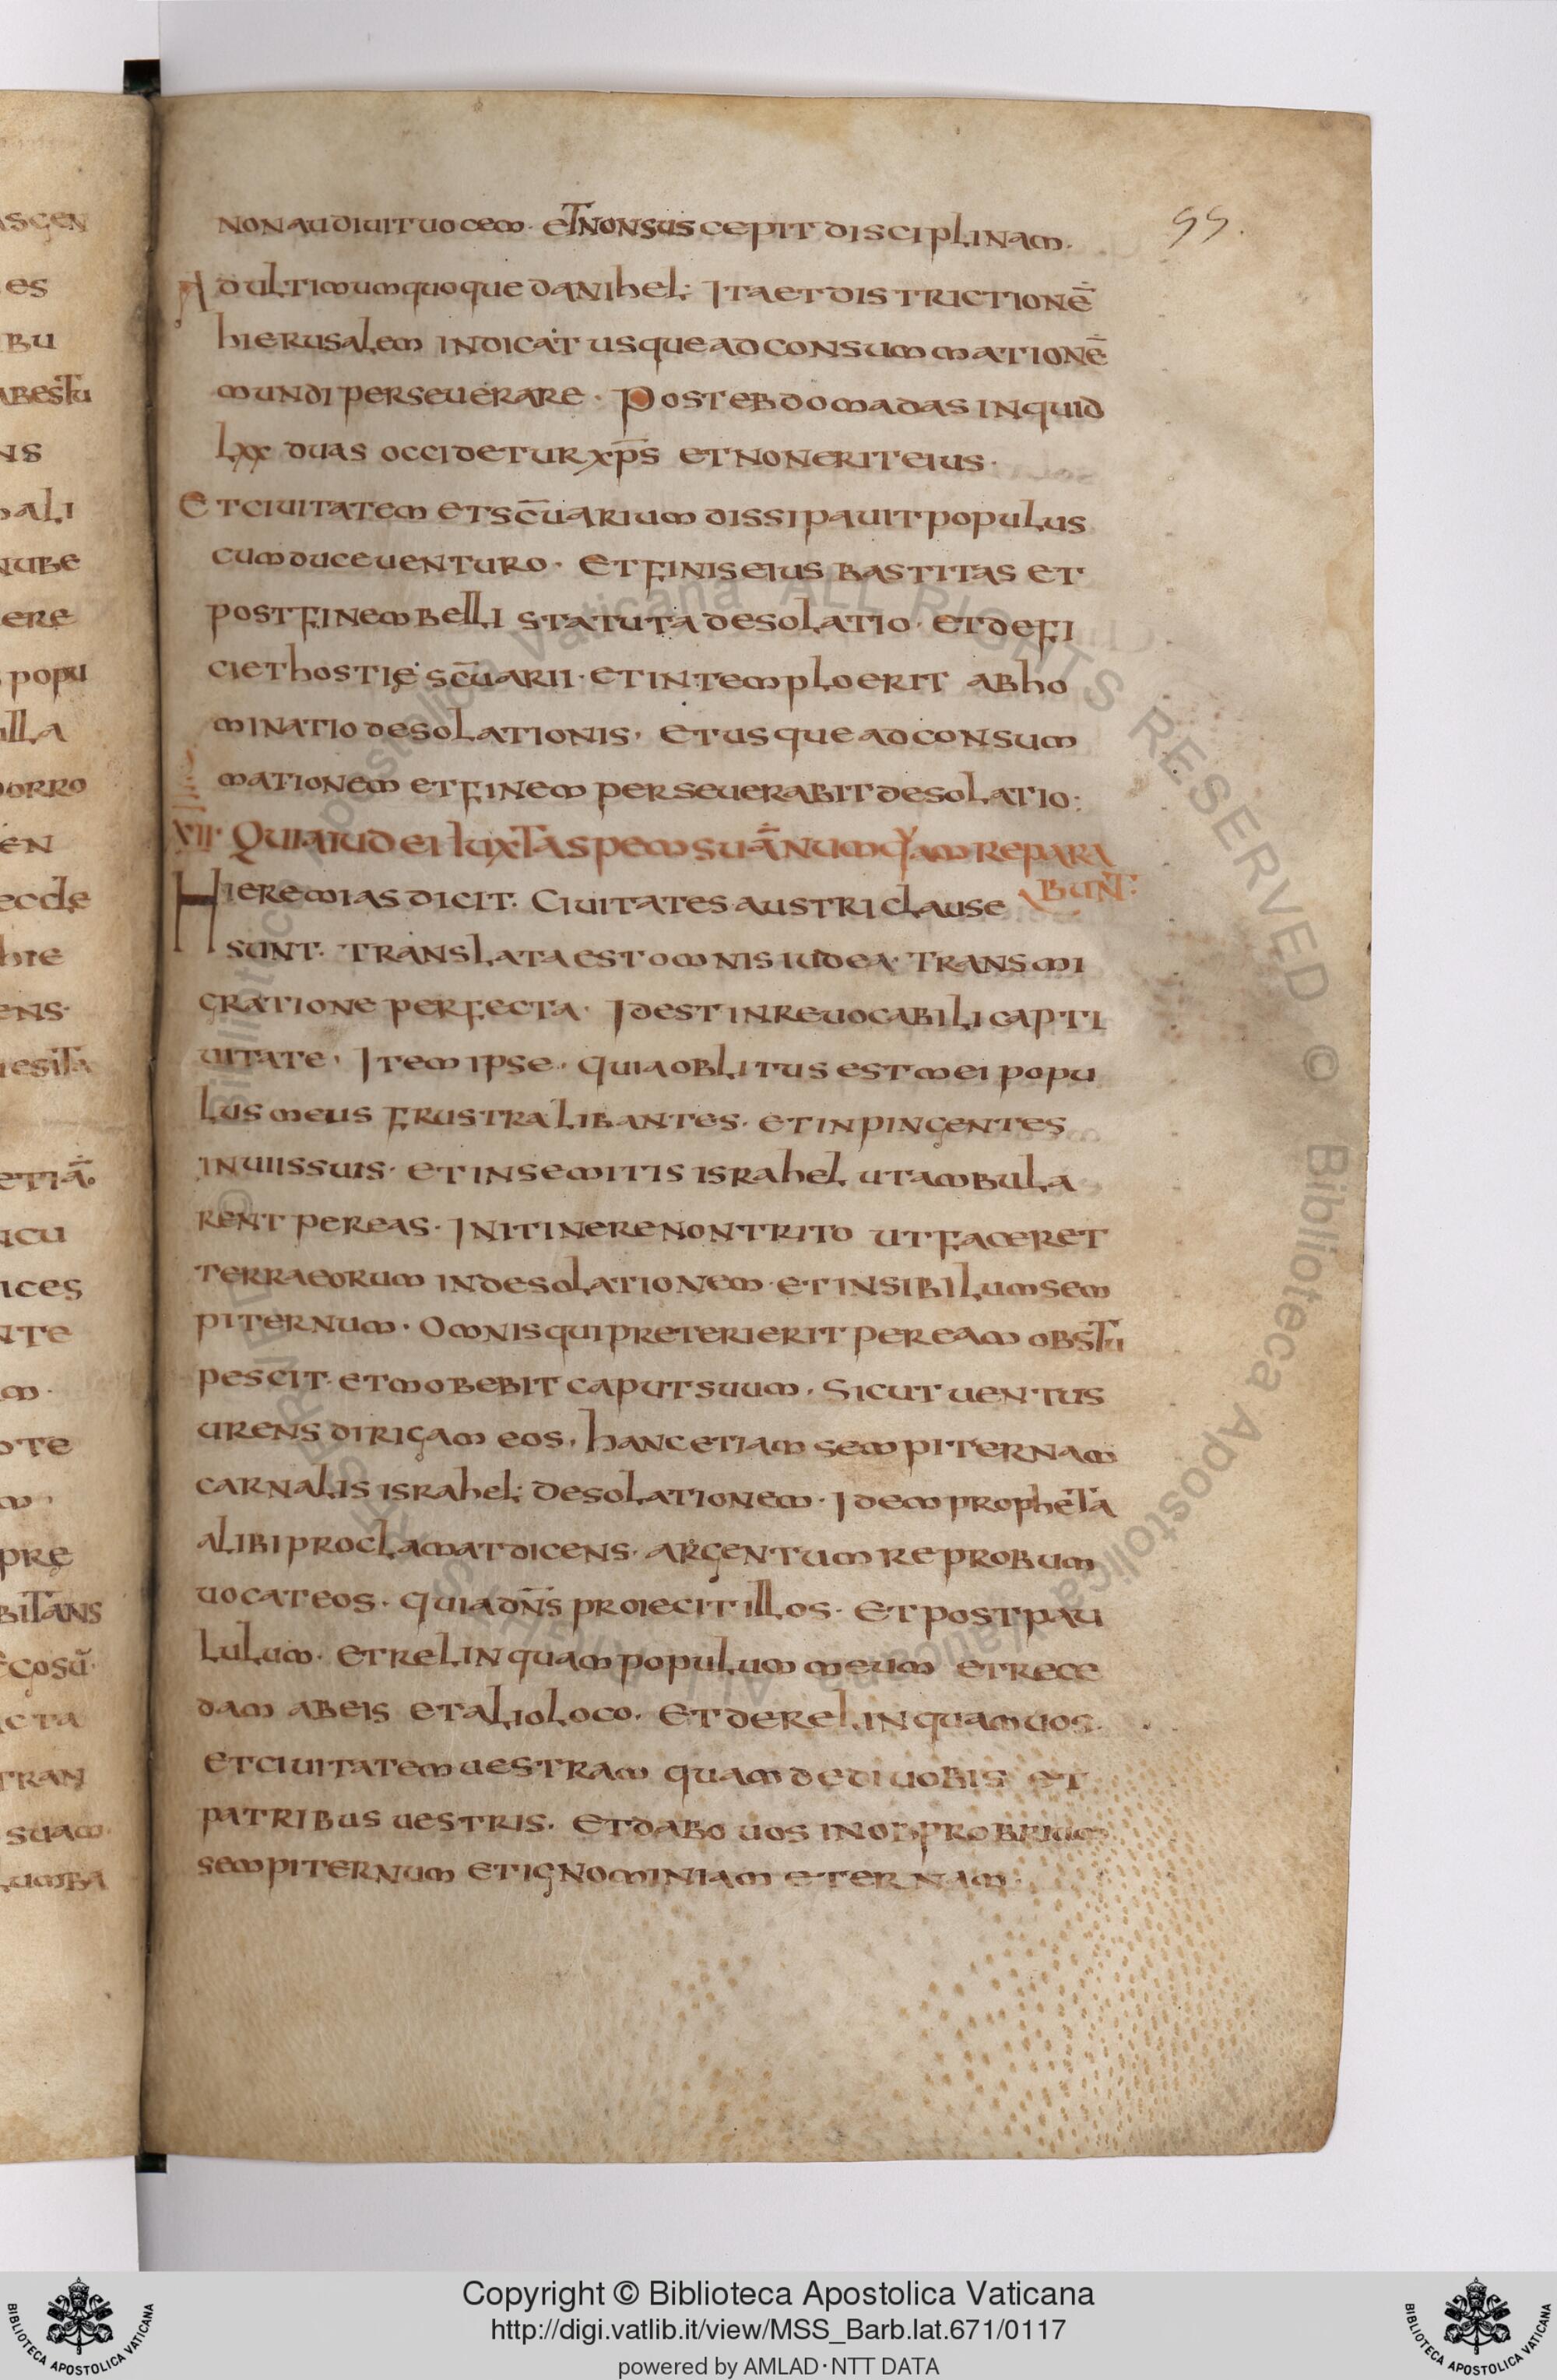 non audiuit uocem. et non suscepit disciplinam.
99.
Ad ultimum quoque danihel; Ita et districtionē
hierusalem indicat usque ad consummationē
mundi perseuerare. Post ebdomadas inquid
lxx duas occidetur xp̄s et non erit eius.
Et ciuitatem et sc̄uarium dissipauit populus
cum duce uenturo. Et finis eius bastitas et
post finem belli statuta desolatio. et defi
ciet hostię sc̄uarii. et in templo erit abho
minatio desolationis. et usque ad consum
mationem et finem perseuerabit desolatio:
XII. Quia iudei iuxta spem suā numq̄am repara
bunt:
Hieremias dicit. Ciuitates austri clause
sunt. translata est omnis iudea. transmi
gratione perfecta. Id est inreuocabili capti
uitate. Item ipse. quia oblitus est mei popu
lus meus frustra libantes. et inpingentes
in uiis suis. et in semitis israhel ut ambula
rent per eas. In itinere non trito ut faceret
terra eorum in desolationem. et in sibilum sem
piternum. Omnis qui preterierit per eam obstu
pescit. et mobebit caput suum. Sicut uentus
urens dirigam eos. hanc etiam sempiternam
carnalis israhel; desolationem. Idem propheta
alibi proclamat dicens. argentum reprobum
uocate eos. quia dn̄s proiecit illos. et post pau
lulum. et relinquam populum meum et rece
dam ab eis et alio loco. Et derelinquam uos.
et ciuitatem uestram quam dedi uobis et
patribus uestris. et dabo uos in obprobrium
sempiternum et ignominiam eternam.
Copyright © Biblioteca Apostolica Vaticana
http://digi.vatlib.it/view/MSS_Barb.lat.671/0117
powered by AMLAD·NTT DATA